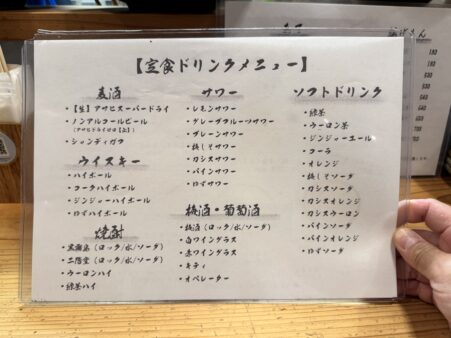 【定食ドリンクメニュー】
麦酒
・【生】アサヒスーパードライ
・ノンアルコールビール
(アサヒドライゼロ【缶】)
・シャンディガフ
ウイスキー
・ハイボール
・コークハイボール
・ジンジャーハイボール
・ゆずハイボール
焼酎
・黒霧島(ロック/水/ソーダ)
・二階堂(ロック/水/ソーダ)
・ウーロンハイ
・緑茶ハイ
サワー
・レモンサワー
・グレープフルーツサワー
・グレープサワー
・梅しそサワー
・カシスサワー
・パインサワー
・ゆずサワー
梅酒・葡萄酒
・梅酒(ロック/水/ソーダ)
・白ワイングラス
・赤ワイングラス
・キティ
・オペレーター
ソフトドリンク
・緑茶
・ウーロン茶
・ジンジャーエール
・コーラ
・オレンジ
・梅しそソーダ
・カシスソーダ
・カシスオレンジ
・カシスウーロン
・パインソーダ
・パインオレンジ
・ゆずソーダ